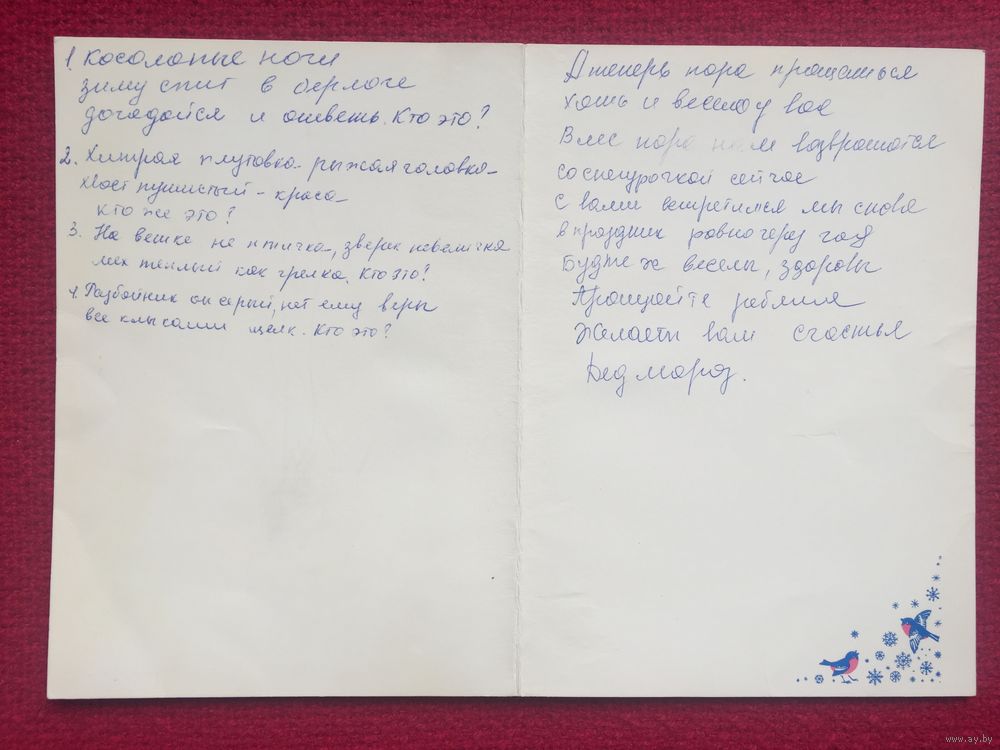 1. Косолапые ноги
зиму спит в берлоге
догадайся и ответь. Кто это?
2. Хитрая плутовка - рыжая головка -
Хвост пушистый - краса -
Кто же это?
3. На ветке не птичка, зверек невеличка
мех теплый как грелка. Кто это?
4. Разбойник он серый, нет ему веры
все клыками щелк. Кто это?
А теперь пора прощаться
хоть и весело у вас
В лес пора нам возвращатся
со снегурочкой сейчас
с вами встретимся мы снова
в праздник ровно через год
Будте ж веселы, здоровы
Прощайте
Желает вам счастья
Дед мороз.
www.ay.by